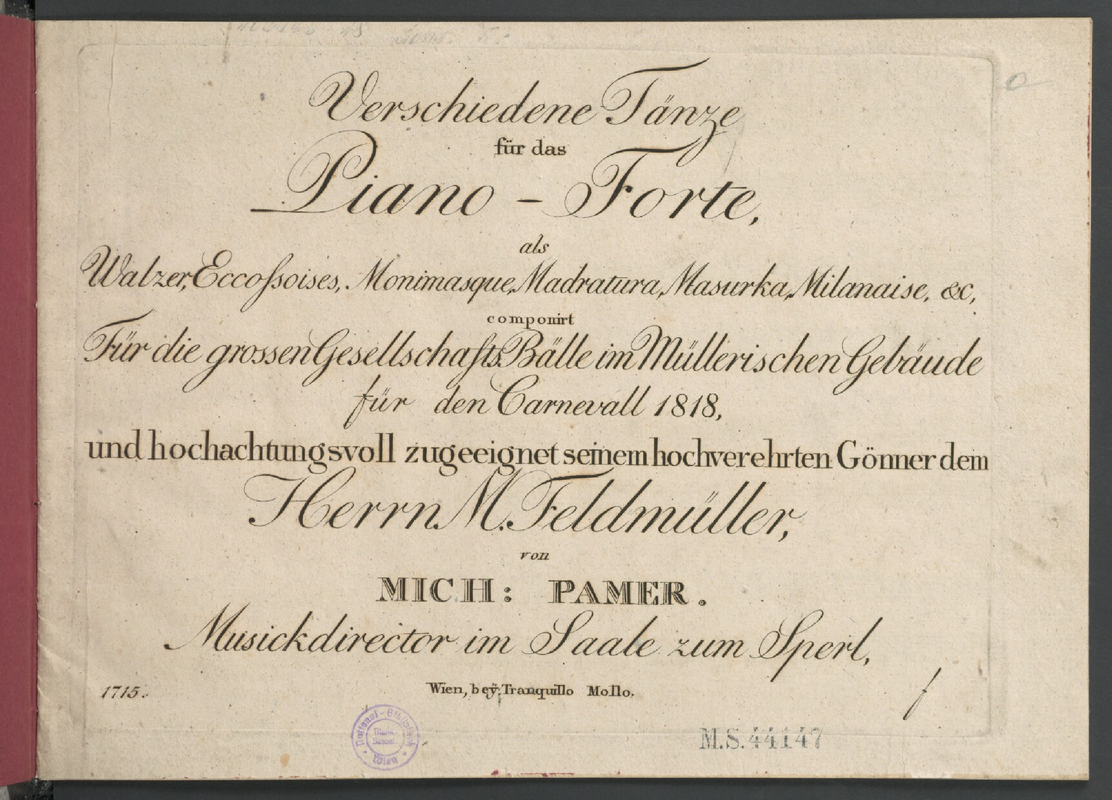 Verschiedene Tänze
für das
Piano - Forte,
als
Walzer, Eccossoises, Monimasque, Madratura, Masurka, Milanaise, &c,
componirt
Für die grossen Gesellschafts Bälle im Müllerischen Gebäude
für den Carnevall 1818,
und hochachtungsvoll zugeeignet seinem hochverehrten Gönner dem
Herrn M. Feldmüller,
von
MICH: PAMER.
Musickdirector im Saale zum Sperl,
1715.
Wien, beÿ Tranquillo Mollo.
M.S. 44147